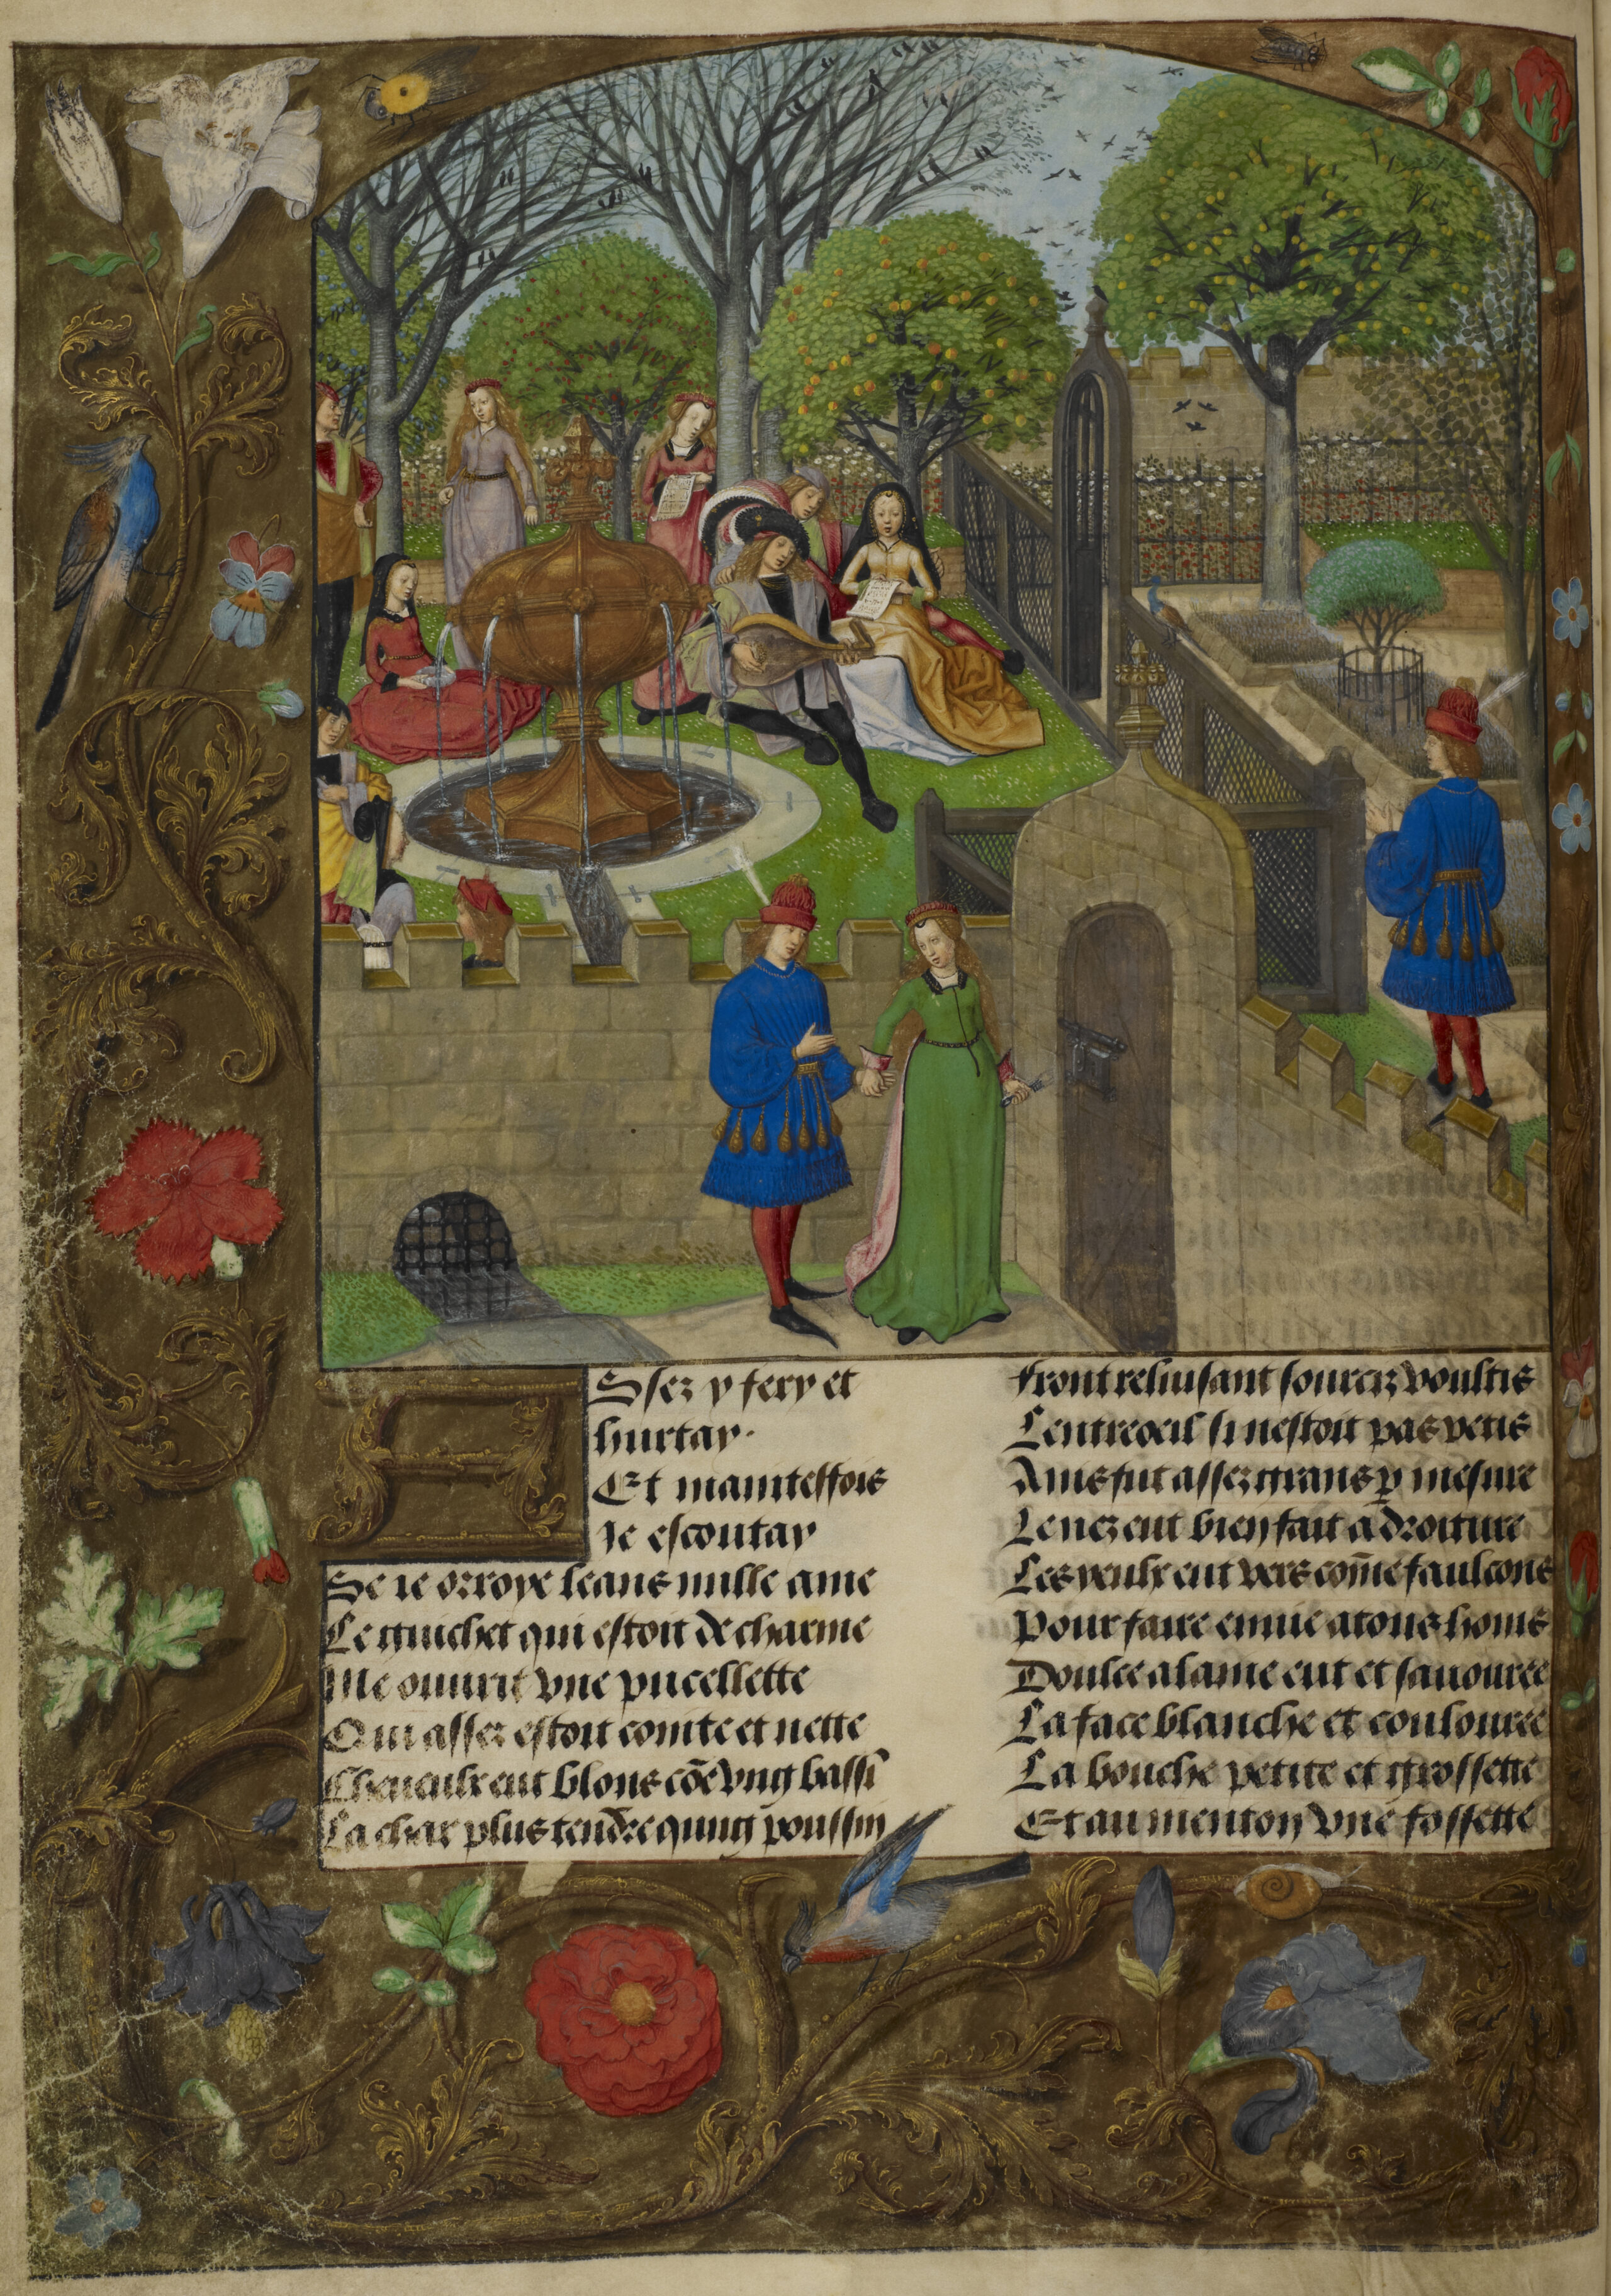 Assez y fery et
hurtay.
Et mainteffois
Je escoutay
Se ie orroye leans nulle ame
Le guichet qui estoit de charme
Me ouurit vne pucellette
Qui assez estoit cointe et nette
Cheueulx eut blons cōe vng bassī
La char plus tendre qung poussin
Front reluisant sourciz voultis
Lentreoeil si nestoit pas petis
Ains fut assez grans ꝑ mesure
Le nez eut bien fait a droiture
Les yeulx eut vers com̄e faulcons
Pour faire enuie a tous homs
Doulce alaine eut et sauouree
La face blanche et coulouree
La bouche petite et grossette
Et au menton vne fossette